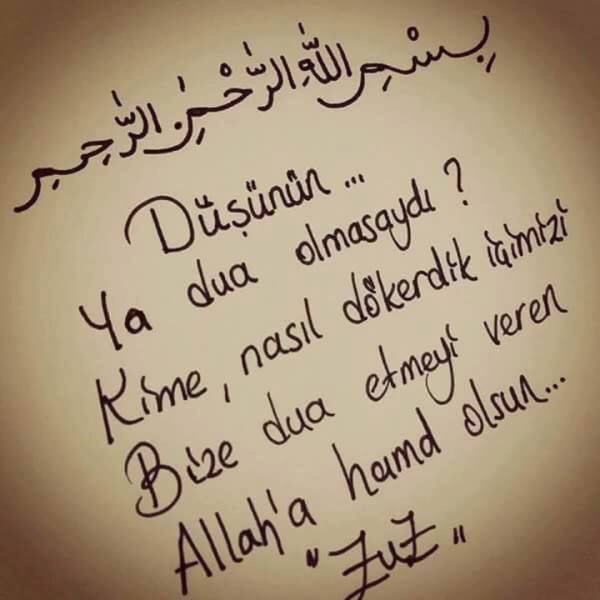 بِسْمِ اللّٰهِ الرَّحْمٰنِ الرَّحِيمِ
Düşünün...
Ya dua olmasaydı?
Kime, nasıl dökerdik içimizi
Bize dua etmeyi veren
Allah'a hamd olsun...
"ZuZ"